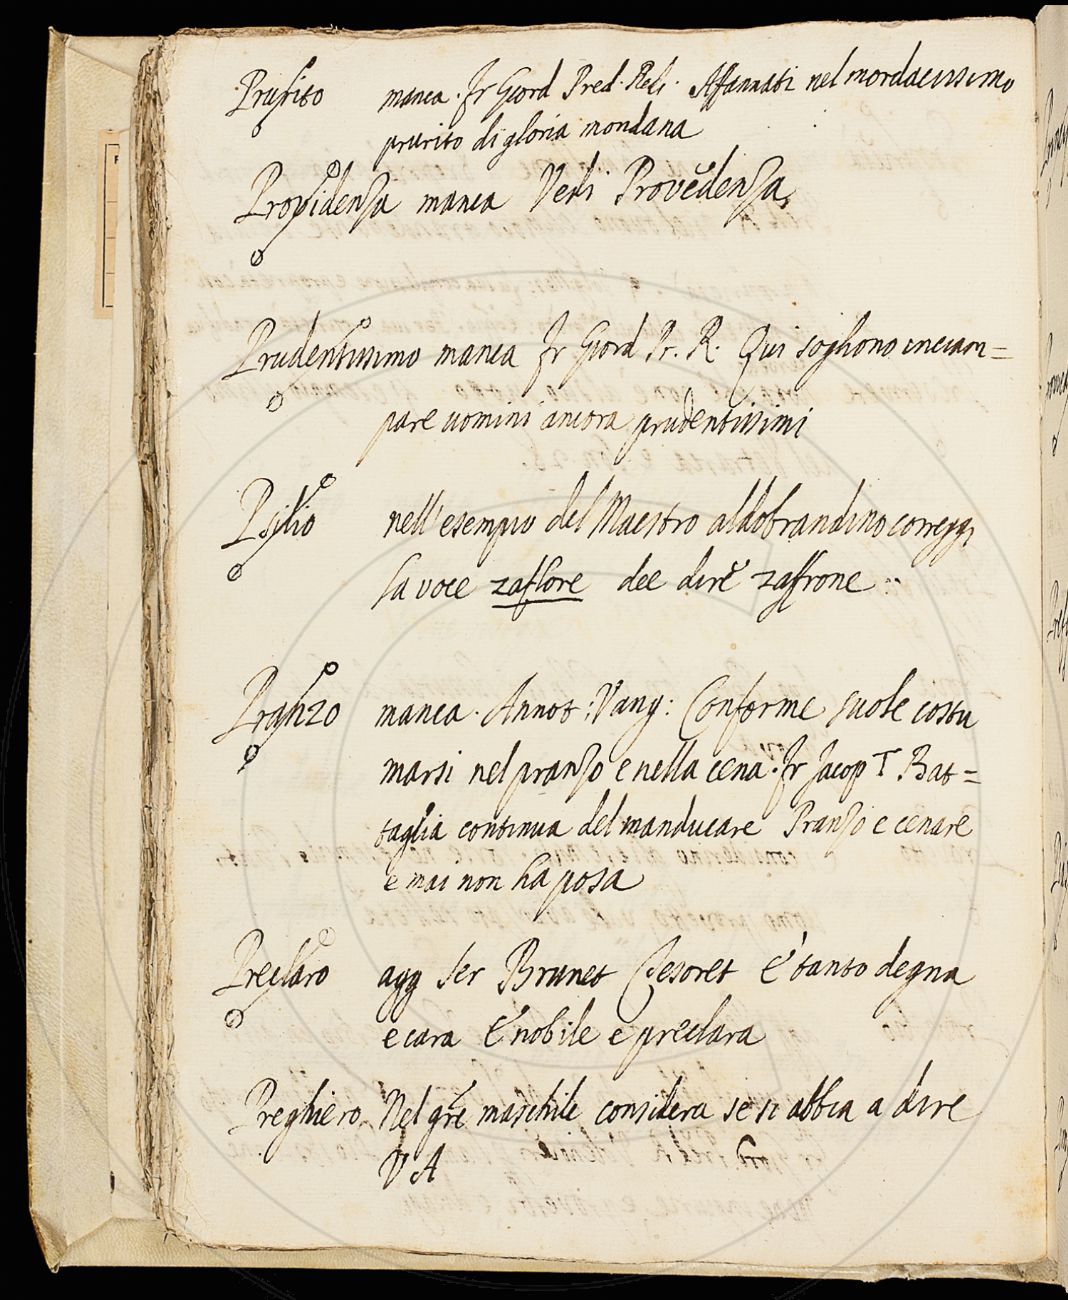 Prurito manca. Fr Giord Pred. Red. Affannati nel mordacissimo
prurito di gloria mondana
Providenza manca Vedi Provedenza
Prudentissimo manca Fr Giord Pr. R. Qui sogliono inciam=
pare uomini ancora prudentissimi
Psilio nell'esempio del Maestro aldobrandino correggi
la voce zaflore dee dire zaffrone
Pranzo manca. Annot: Vang: Conforme suole costu
marsi nel pranzo e nella cena. Fr Jacop T. Bat=
taglia continua del manducare Pranzo e cenare
e mai non ha posa
Preclaro agg Ser Brunet Tesoret E' tanto degna
e cara E' nobile e preclara
Preghiero. Nel gre maschile considera se si abbia a dire
V A G